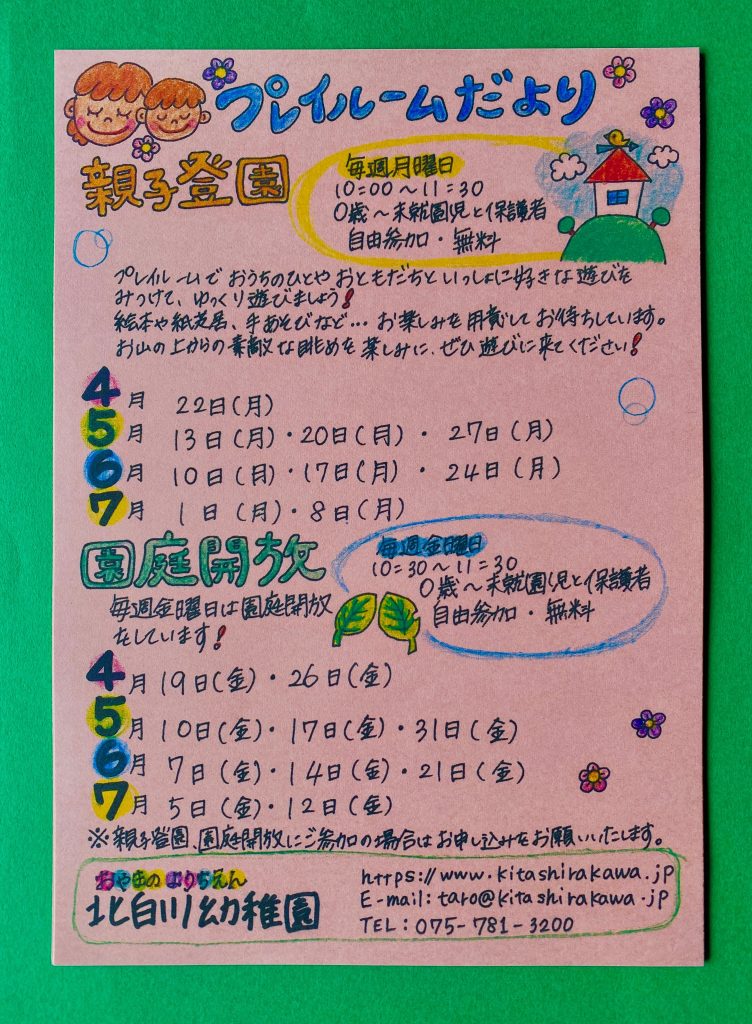 プレイルームだより
親子登園
毎週月曜日
10:00〜11:30
0歳〜未就園児と保護者
自由参加・無料
プレイルームで おうちのひとや おともだちと いっしょに好きな遊びを
みつけて、ゆっくり遊びましょう!
絵本や紙芝居、手あそびなど… お楽しみを用意して お待ちしています。
お山の上からの素敵な眺めを楽しみに、ぜひ遊びに来てください!
4月 22日(月)
5月 13日(月)・20日(月)・27日(月)
6月 10日(月)・17日(月)・24日(月)
7月 1日(月)・8日(月)
園庭開放
毎週金曜日
10:30〜11:30
0歳〜未就園児と保護者
自由参加・無料
毎週金曜日は園庭開放
をしています!
4月 19日(金)・26日(金)
5月 10日(金)・17日(金)・31日(金)
6月 7日(金)・14日(金)・21日(金)
7月 5日(金)・12日(金)
※親子登園、園庭開放にご参加の場合はお申し込みをお願いいたします。
おやまの ようちえん
北白川幼稚園
https://www.kitashirakawa.jp
E-mail:taro@kitashirakawa.jp
TEL:075-781-3200